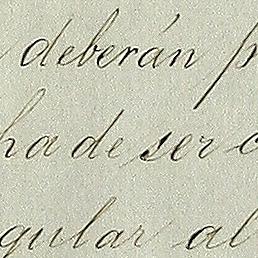 deberán p
ha de ser c
gular al